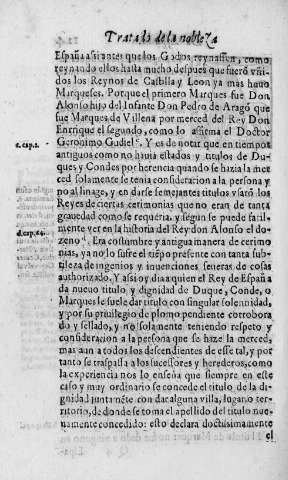 Tratado de la nobleza
España assi antes que los Godos reynassen, como
reynando ellos hasta mucho despues que fuerõ vni
dos los Reynos de Castilla y Leon ya mas hauo
Marqueses. Porque el primero Marques fue Don
Alonso hijo del Infante Don Pedro de Aragõ que
fue Marques de Villena por merced del Rey Don
Enrrique el segundo, como lo affirma el Doctor
c. cap. 2.
Geronimo Gudiel c. Y es de notar que en tiempos
antiguos como no hauia estados y titulos de Du-
ques y Condes por herencia quando se hazia la mer
ced solamente se tenia consideration a la persona y
no al linage, y en darse semejantes titulos vsarõ los
Reyes de ciertas cerimonias que no eran de tanta
grauedad como se requeria, y segun se puede facil-
d. cap. 64.
mente ver en la historia del Rey don Alonso el do-
zeno d. Era costumbre y antigua manera de cerimo
nias, ya no lo sufre el tiẽpo presente con tanta sub-
tileza de ingenios y inuenciones seueras de cosas
authorizado. Y assi oy dia quien el Rey de España
da nueuo titulo, y dignidad de Duque, Conde, o
Marques le suele dar titulo con singular solennidad,
y por su priuilegio de plomo pendiente corrobora
do y sellado, y no solamente teniendo respeto y
consideration a la persona que se haze la merced,
mas aun a todos los descendientes de esse tal, y por
tanto se traspassa a los successores y herederos, como
la experiencia nos lo enseña que siempre en este
caso y muy ordinario se concede el titulo de la di-
gnidad juntamẽte con da calguna villa, lugar o ter-
ritorio, de donde se toma el apellido del titulo nue-
uamente concedido: esto declara doctissimamente
el